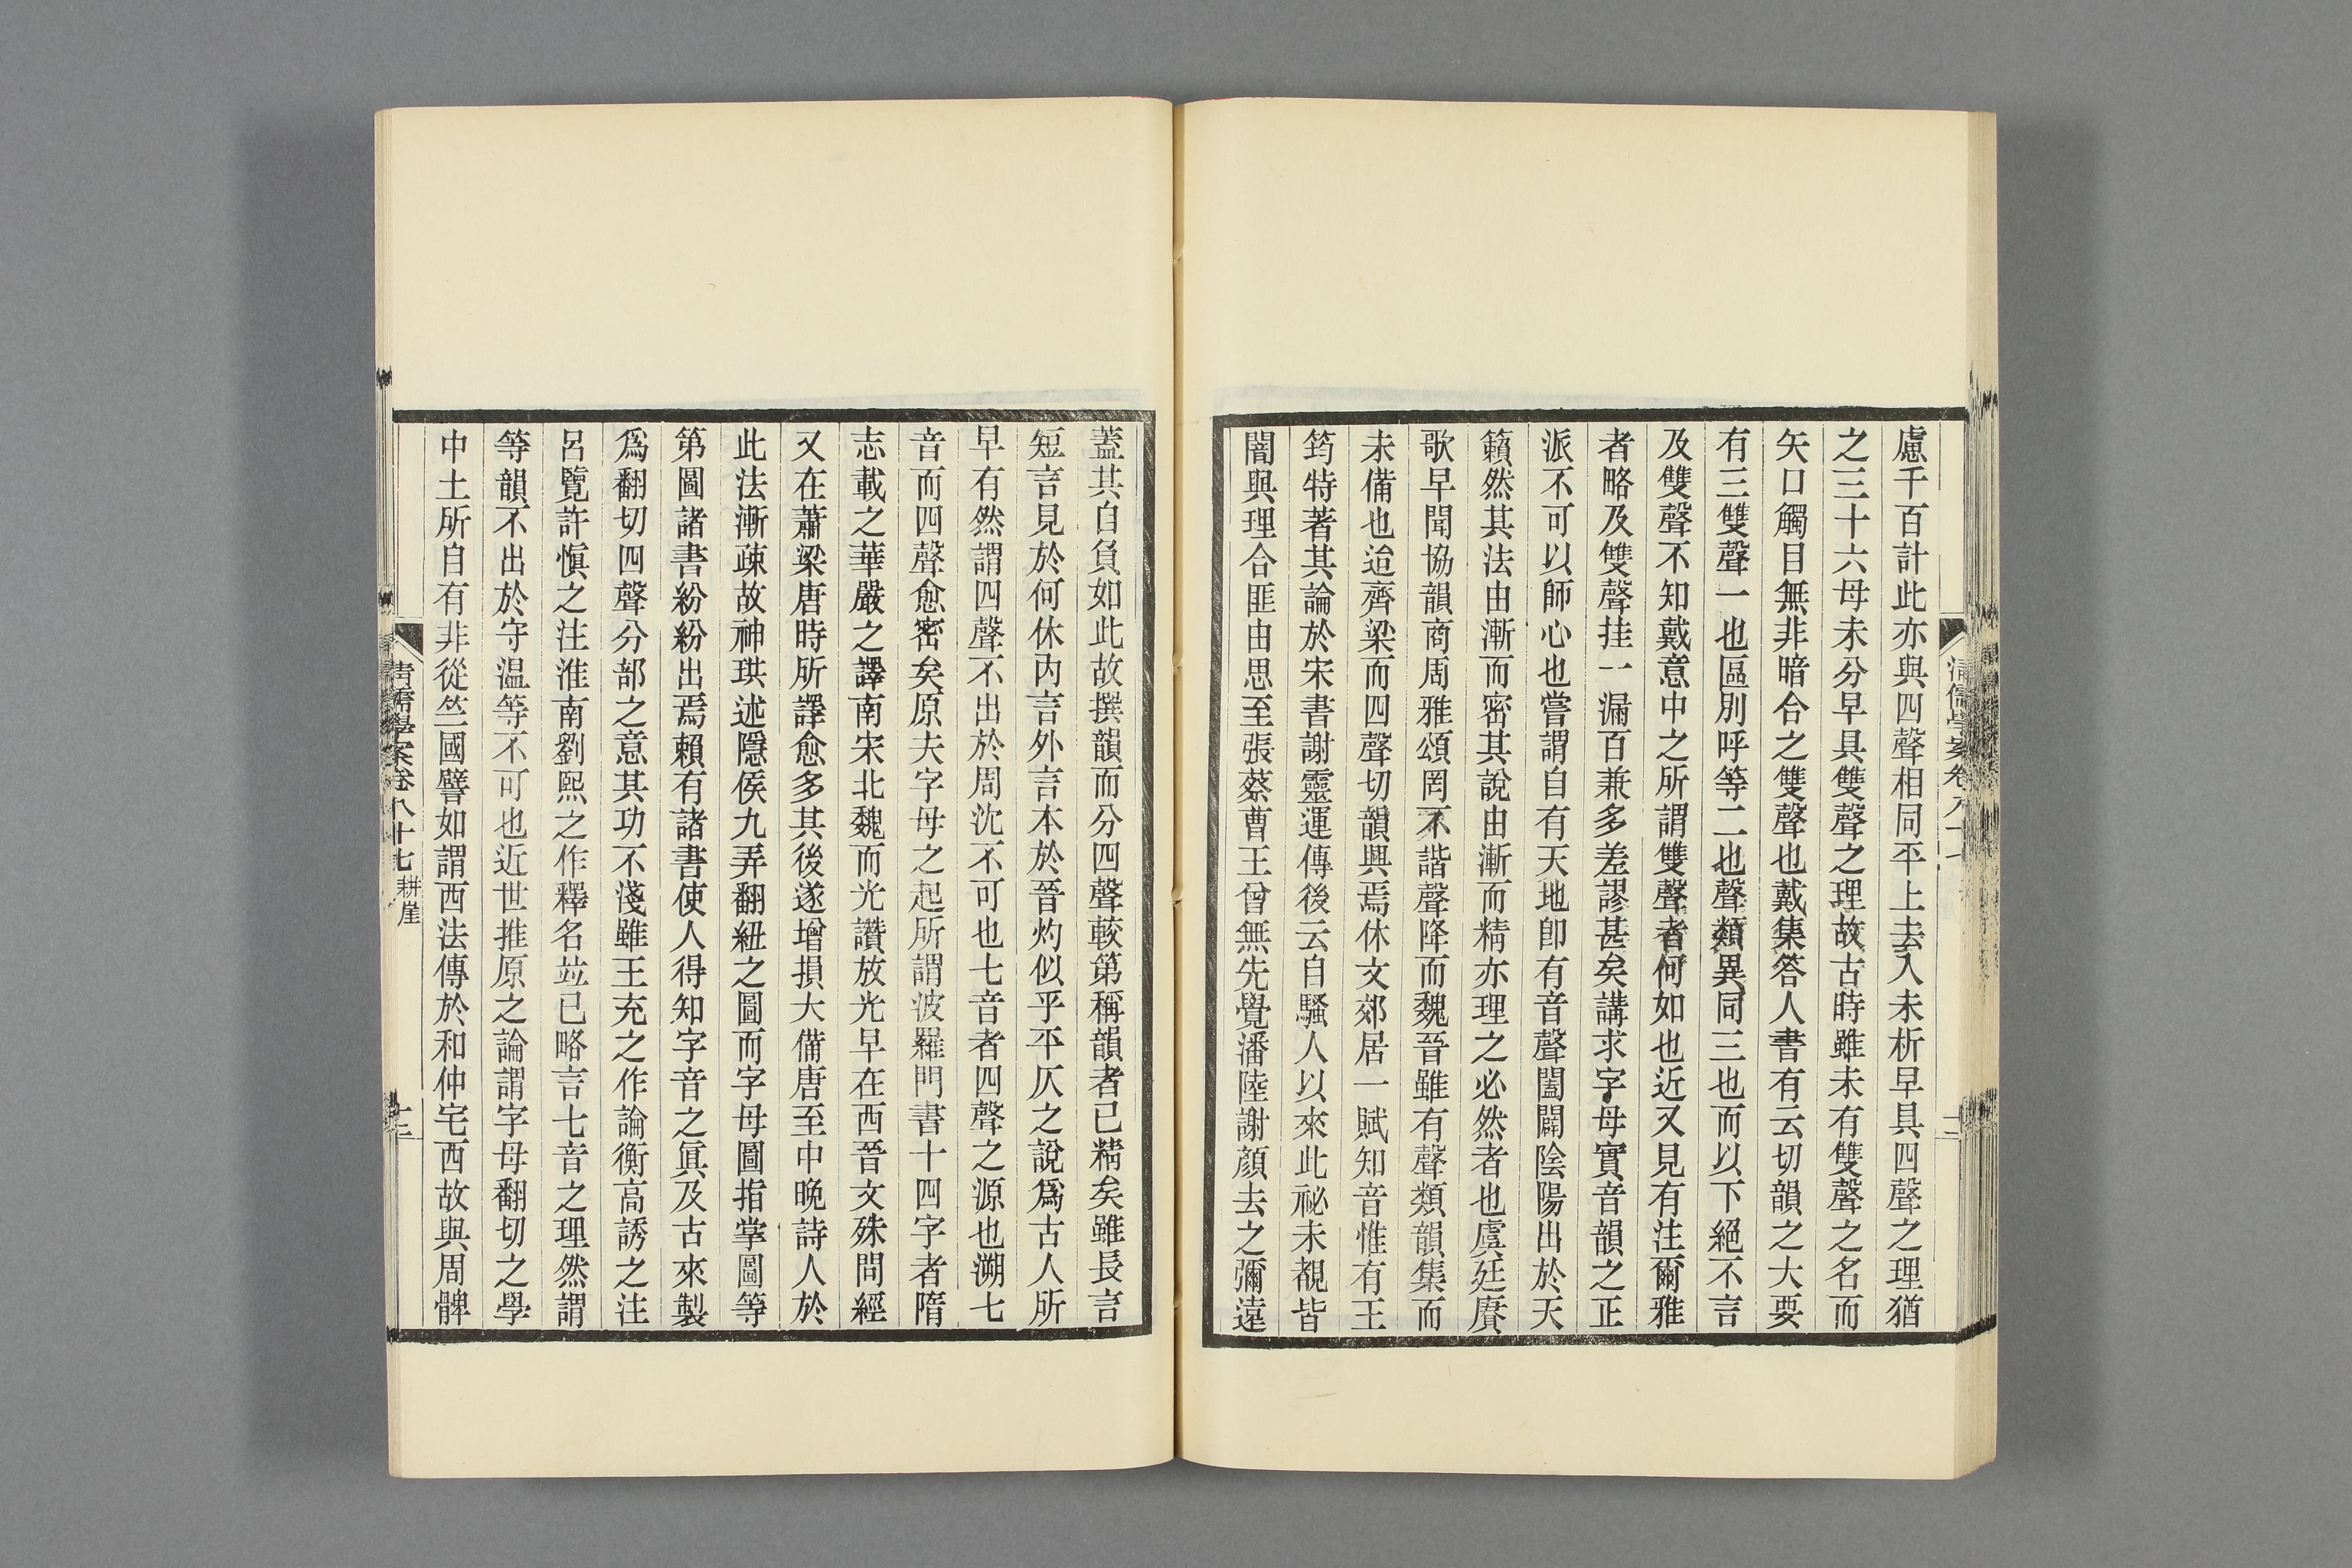 慮千百計此亦與四聲相同平上去入未析早具四聲之理猶
之三十六母未分早具雙聲之理故古時雖未有雙聲之名而
矢口觸目無非暗合之雙聲也戴集答人書有云切韻之大要
有三雙聲一也區別呼等二也聲類異同三也而以下絕不言
及雙聲不知戴意中之所謂雙聲者何如也近又見有注爾雅
者略及雙聲挂一漏百兼多差謬甚矣講求字母實音韻之正
派不可以師心也嘗謂自有天地卽有音聲闔闢陰陽出於天
籟然其法由漸而密其說由漸而精亦理之必然者也虞廷賡
歌早聞協韻商周雅頌罔不諧聲降而魏晉雖有聲類韻集而
未備也迨齊梁而四聲切韻興焉休文郊居一賦知音惟有王
筠特著其論於宋書謝靈運傳後云自騷人以來此祕未覩皆
闇與理合匪由思至張蔡曹王曾無先覺潘陸謝顔去之彌遠
蓋其自負如此故撰韻而分四聲較第稱韻者已精矣雖長言
短言見於何休內言外言本於晉灼似乎平仄之說爲古人所
早有然謂四聲不出於周沈不可也七音者四聲之源也溯七
音而四聲愈密矣原夫字母之起所謂波羅門書十四字者隋
志載之華嚴之譯南宋北魏而光讚放光早在西晉文殊問經
又在蕭梁唐時所譯愈多其後遂增損大備唐至中晚詩人於
此法漸疎故神珙述隱侯九弄翻紐之圖而字母圖指掌圖等
第圖諸書紛紛出焉賴有諸書使人得知字音之眞及古來製
爲翻切四聲分部之意其功不淺雖王充之作論衡高誘之注
呂覽許愼之注淮南劉熙之作釋名竝已略言七音之理然謂
等韻不出於守溫等不可也近世推原之論謂字母翻切之學
中土所自有非從竺國譬如謂西法傳於和仲宅西故與周髀
清儒學案卷八十七 耕崖
十三